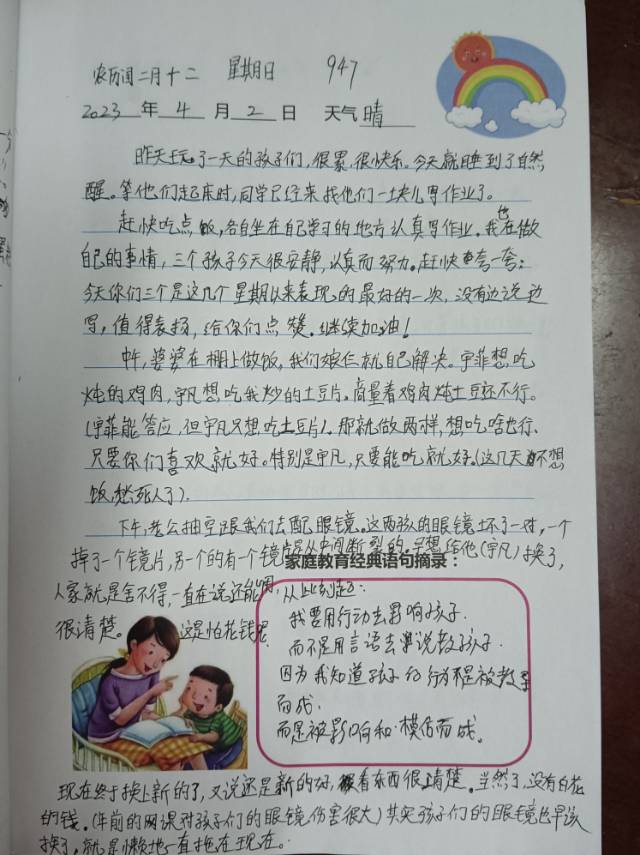 农历闰二月十二 星期日 947
2023 年 4 月 2 日 天气 晴
昨天玩了一天的孩子们，很累，很快乐。今天就睡到了自然
醒。等他们起床时，同学已经来找他们一块儿写作业了。
赶快吃点饭，各自坐在自己学习的地方认真写作业。我也在做
自己的事情，三个孩子今天很安静，认真而努力。赶快夸一夸：
今天你们三个是这几个星期以来表现的最好的一次，没有边说边
写，值得表扬，给你们点赞。继续加油！
中午，婆婆在棚上做饭，我们娘仨就自己解决。宇菲想吃
炖的鸡肉，宇凡想吃我炒的土豆片。商量着鸡肉炖土豆还不行。
（宇菲能答应，但宇凡只想吃土豆片）。那就做两样，想吃啥也行、
只要你们喜欢就好。特别是宇凡，只要能吃就好。（这几天不想
饭，愁死人了）.
下午，老公抽空跟我们去配眼镜。这两孩的眼镜坏了一对，一个
掉了一个镜片，另一个的有一个镜片是从中间断裂的。早想给他（宇凡）换了，
人家就是舍不得，一直在说还能用，
很清楚。这是怕花钱呢
家庭教育经典语句摘录：
从此刻起：
我要用行动去影响孩子.
而不是用言语去说教孩子.
因为我知道孩子的行为不是被教导
而成.
而是被影响和模仿而成。
现在终于换上新的了，又说还是新的好，看东西很清楚。当然了，没有白花
的钱。（年前的网课对孩子们的眼镜伤害很大）其实孩子们的眼镜也早该
换了，就是懒地一直拖在现在。